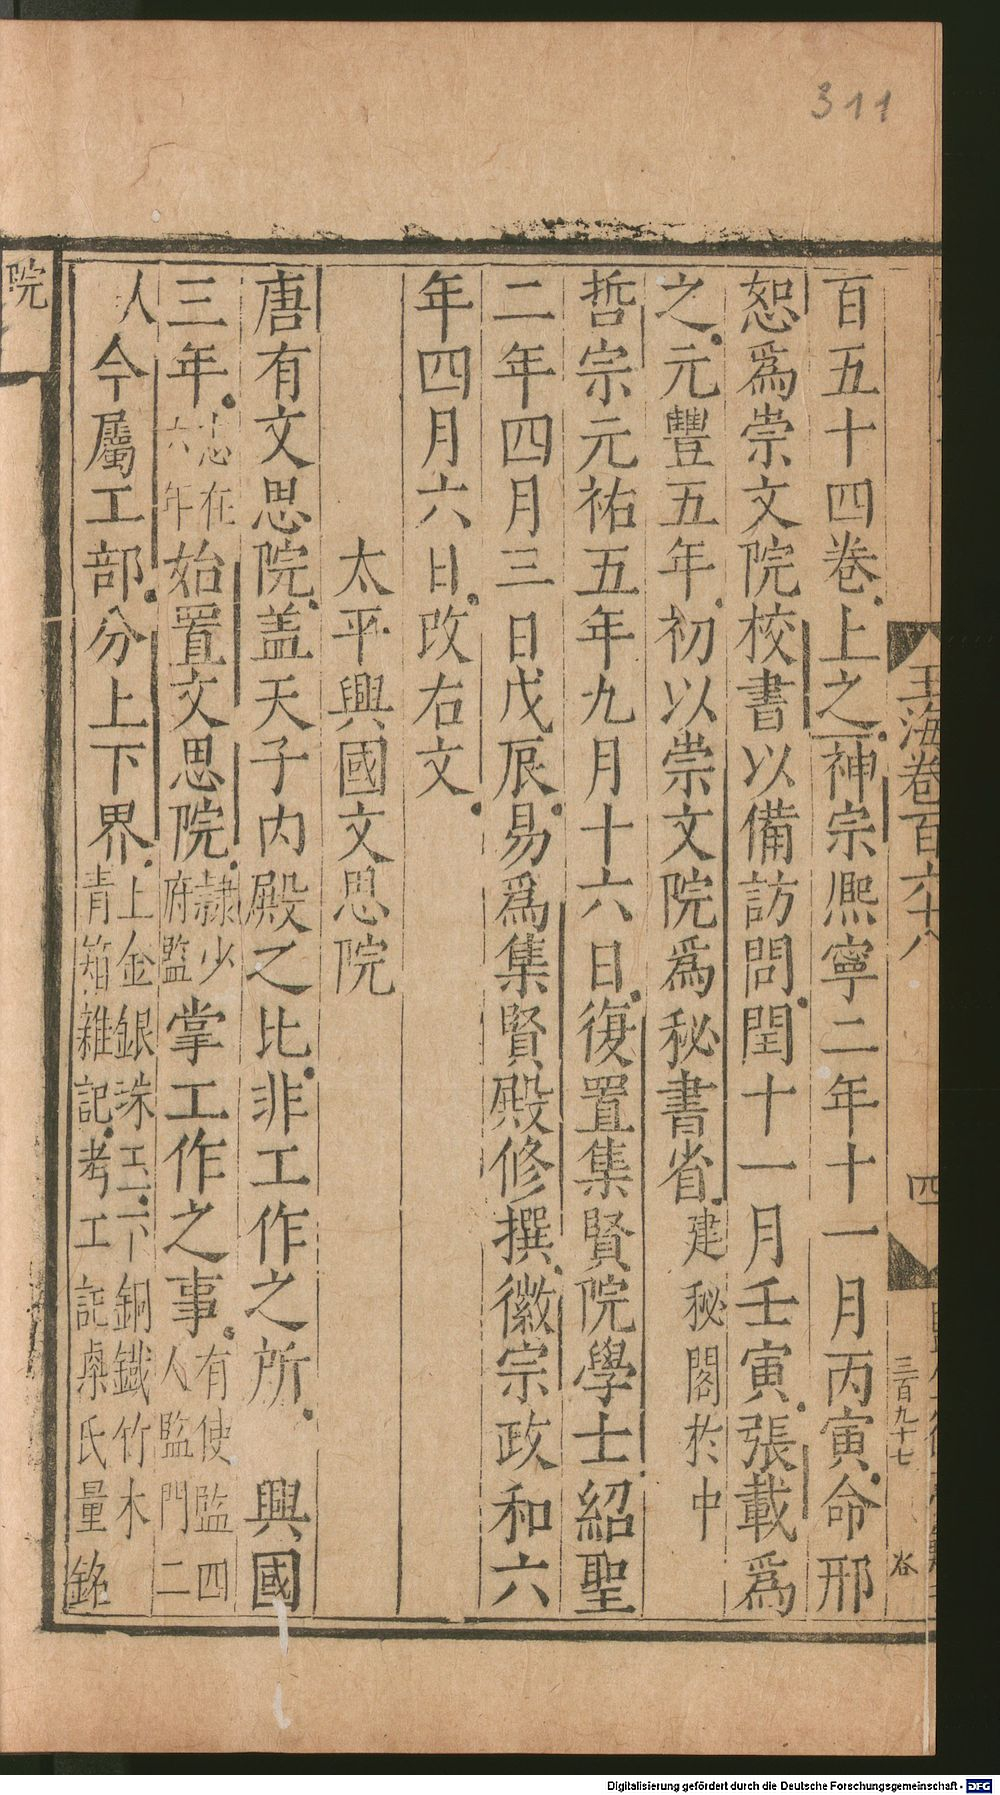 311
玉海卷百六十八
四
三百九十七
百五十四卷上之神宗熈寧二年十一月丙寅命邢
恕爲崇文院校書以備訪問閏十一月壬寅張載爲
之元豐五年初以崇文院爲秘書省建秘閣於中
哲宗元祐五年九月十六日復置集賢院學士紹聖
二年四月三日戊辰易爲集賢殿修撰徽宗政和六
年四月六日改右文
太平興國文思院
唐有文思院盖天子内殿之比非工作之所 興國
三年志在六年始置文思院隷少府監掌工作之事有使監四人監門二
人今屬工部分上下界上金銀珠玉下銅鐵竹木青箱雜記考工記㮚氏量銘
院
Digitalisierung gefördert durch die Deutsche Forschungsgemeinschaft - DFG